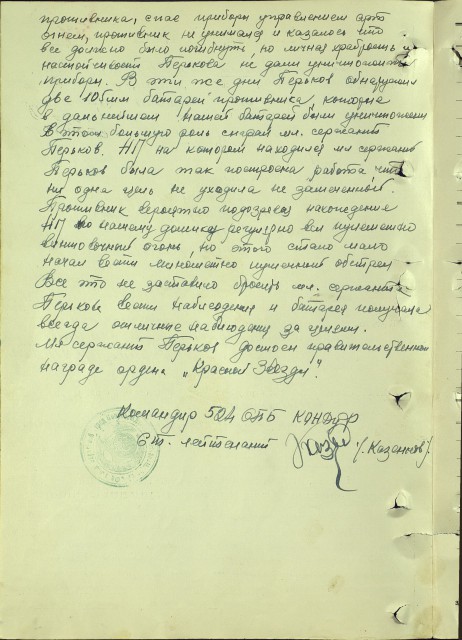 противника, спас приборы управлением арт
огнем, противник не унимался и казалось что
все должно было погибнуть, но личная храбрость и
настойчивость Перькова не дали уничтожить
приборы. В эти же дни Перьков обнаружил
две 105мм батареи противника, которые
в дальнейшем нашей батареей были уничтожены
в этом большую роль сыграл мл. сержант
Перьков. НП на котором находился мл сержант
Перьков была так построена работа что
ни одна цель не уходила не замеченный.
Противник вероятно подозревал нахождение
НП по нашему домику регулярно вел пулеметно
винтовочный огонь, но этого стало мало
начал вести минометно пушечный обстрел
Все это не заставило бросить мл. сержанта
Перькова вести наблюдения и батарея получала
всегда отличные наблюдения за целями.
Мл сержант Перьков достоен правительственной
награде ордена „Красной Звезды".
Командир ОПБ
Ст. лейтенант (Казаннов).